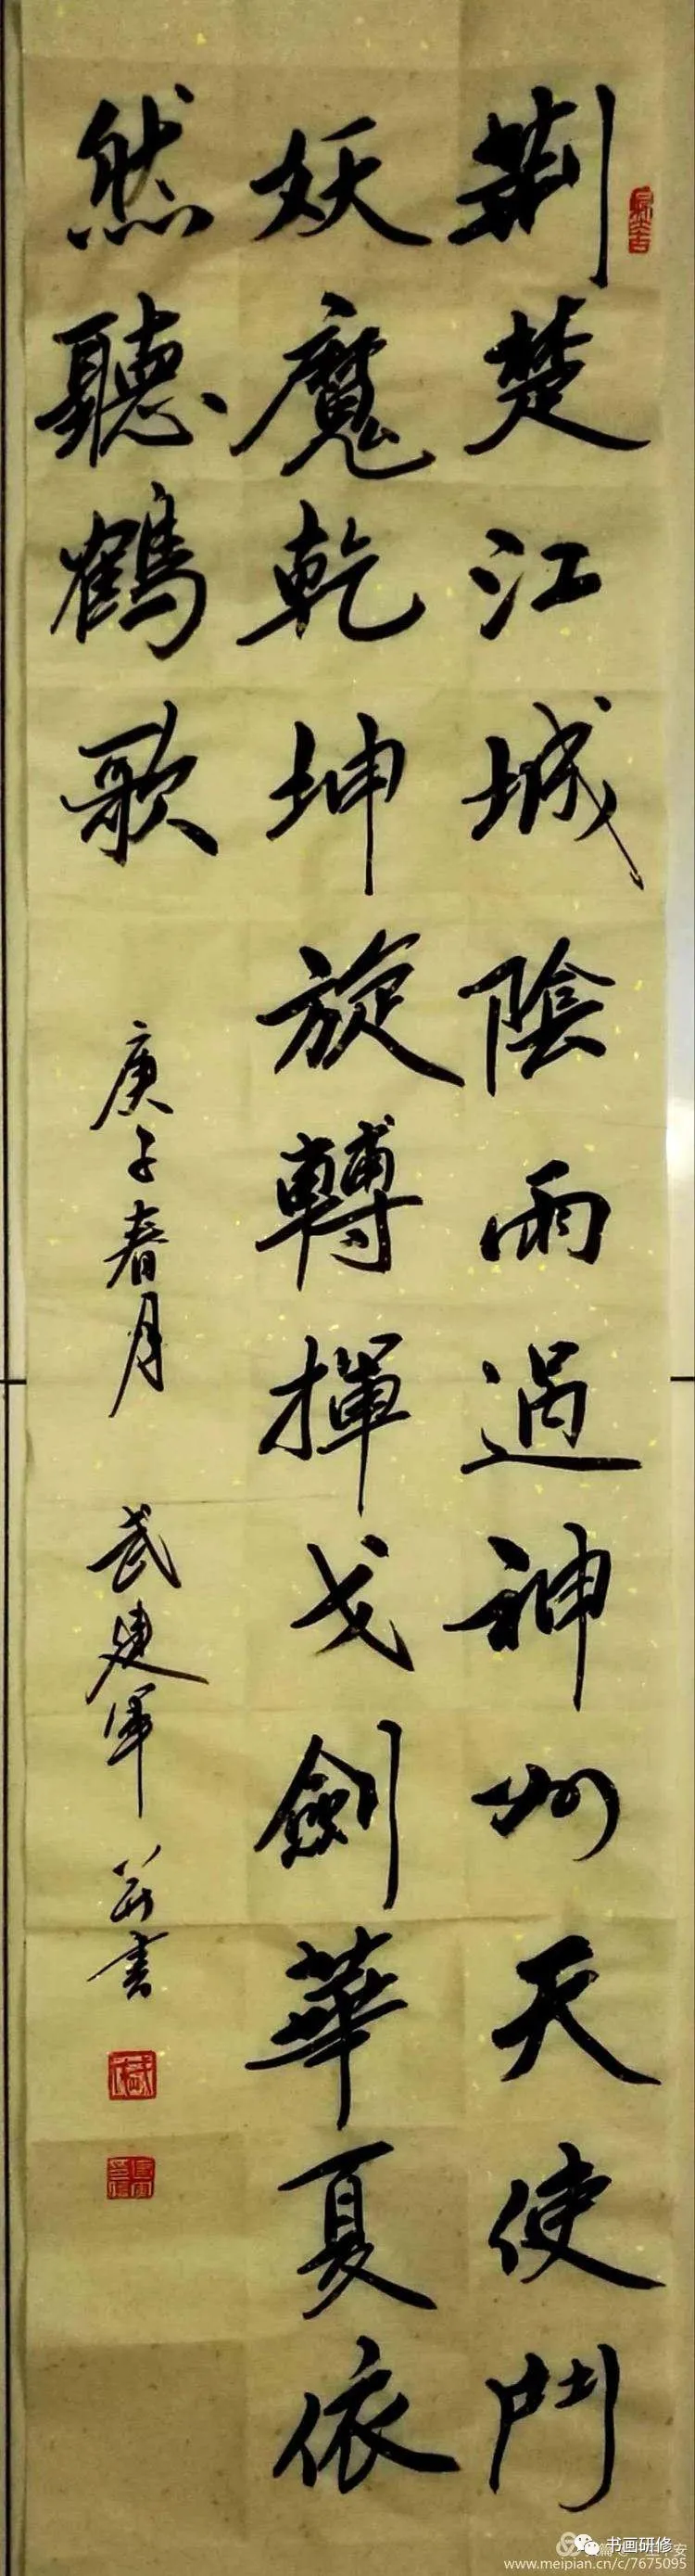 荆楚江城陰雨過神州天使鬥
妖魔乾坤旋轉揮戈劍華夏依
然聽鶴歌
庚子春月 武建军 并書
书画研修
www.meipian.cn/c/7675095